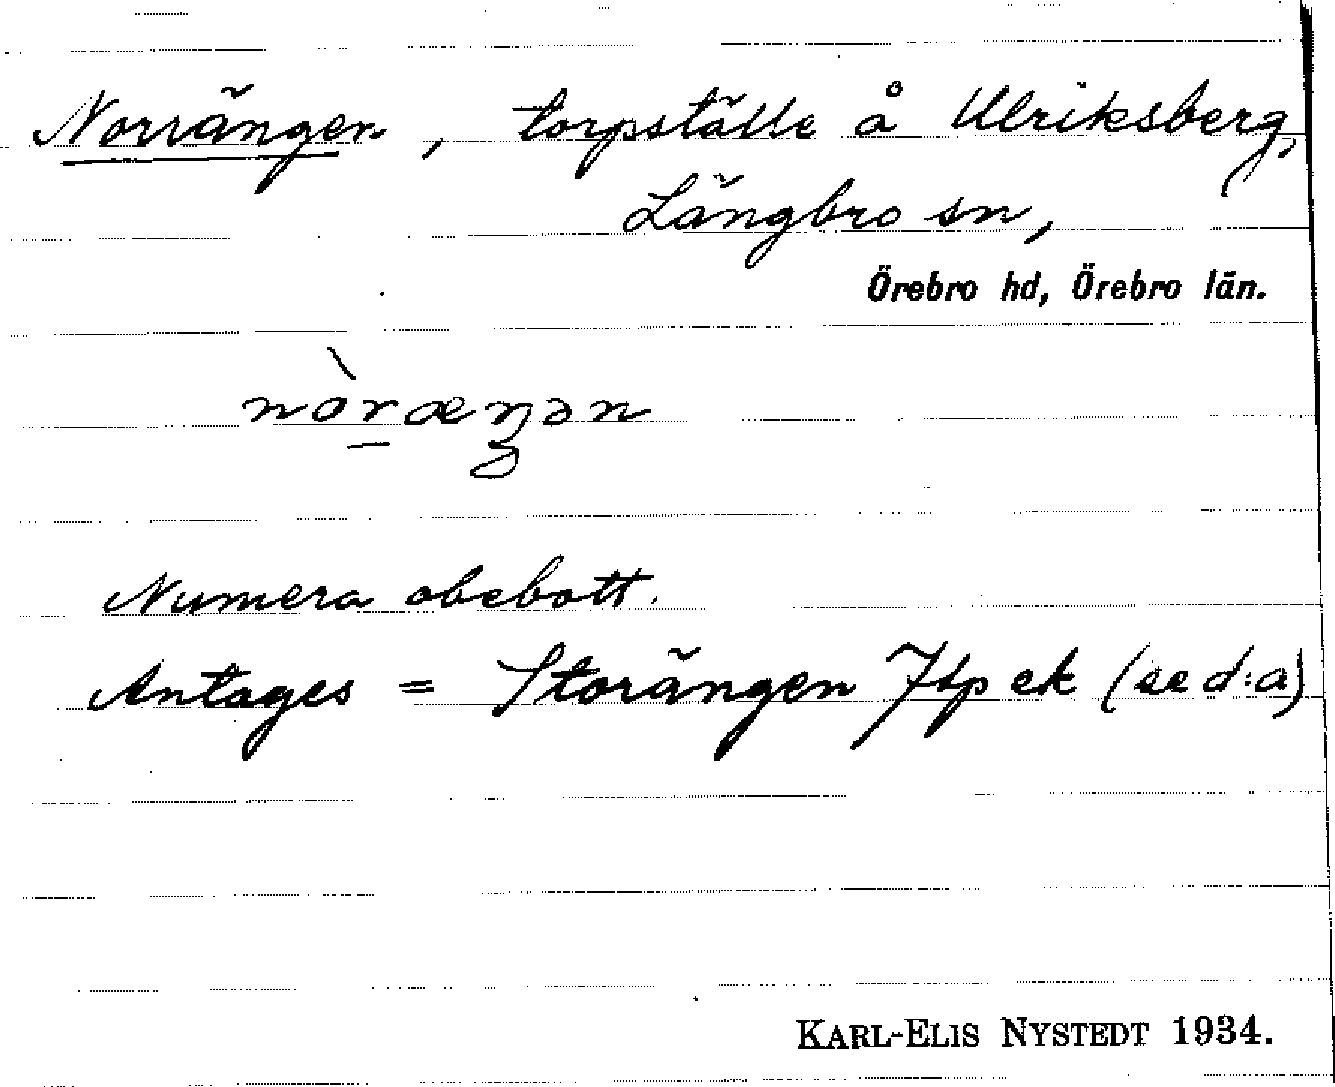 Norrängen, torpställe å Ulriksberg,
Längbro sn,
Örebro hd, Örebro län.
nòræŋən
Numera obebott.
Antages = Storängen Jtp ek (se d:a)
KARL-ELIS NYSTEDT 1934.